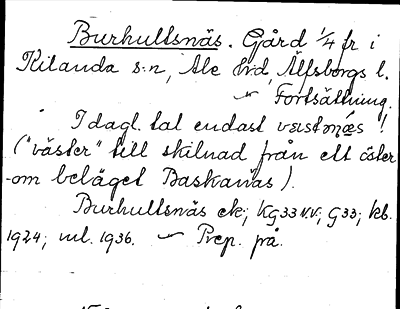 Burhultsnäs. Gård 1/4 fr i
Kilanda s:n, Ale hd, Älfsborgs l.
Fortsättning.
I dagl. tal endast
("väster" till skilnad från ett öster
om beläget Baskanäs).
Burhultsnäs ek; KG33NV; G33; kb.
1924; ml. 1936. Prep. på.